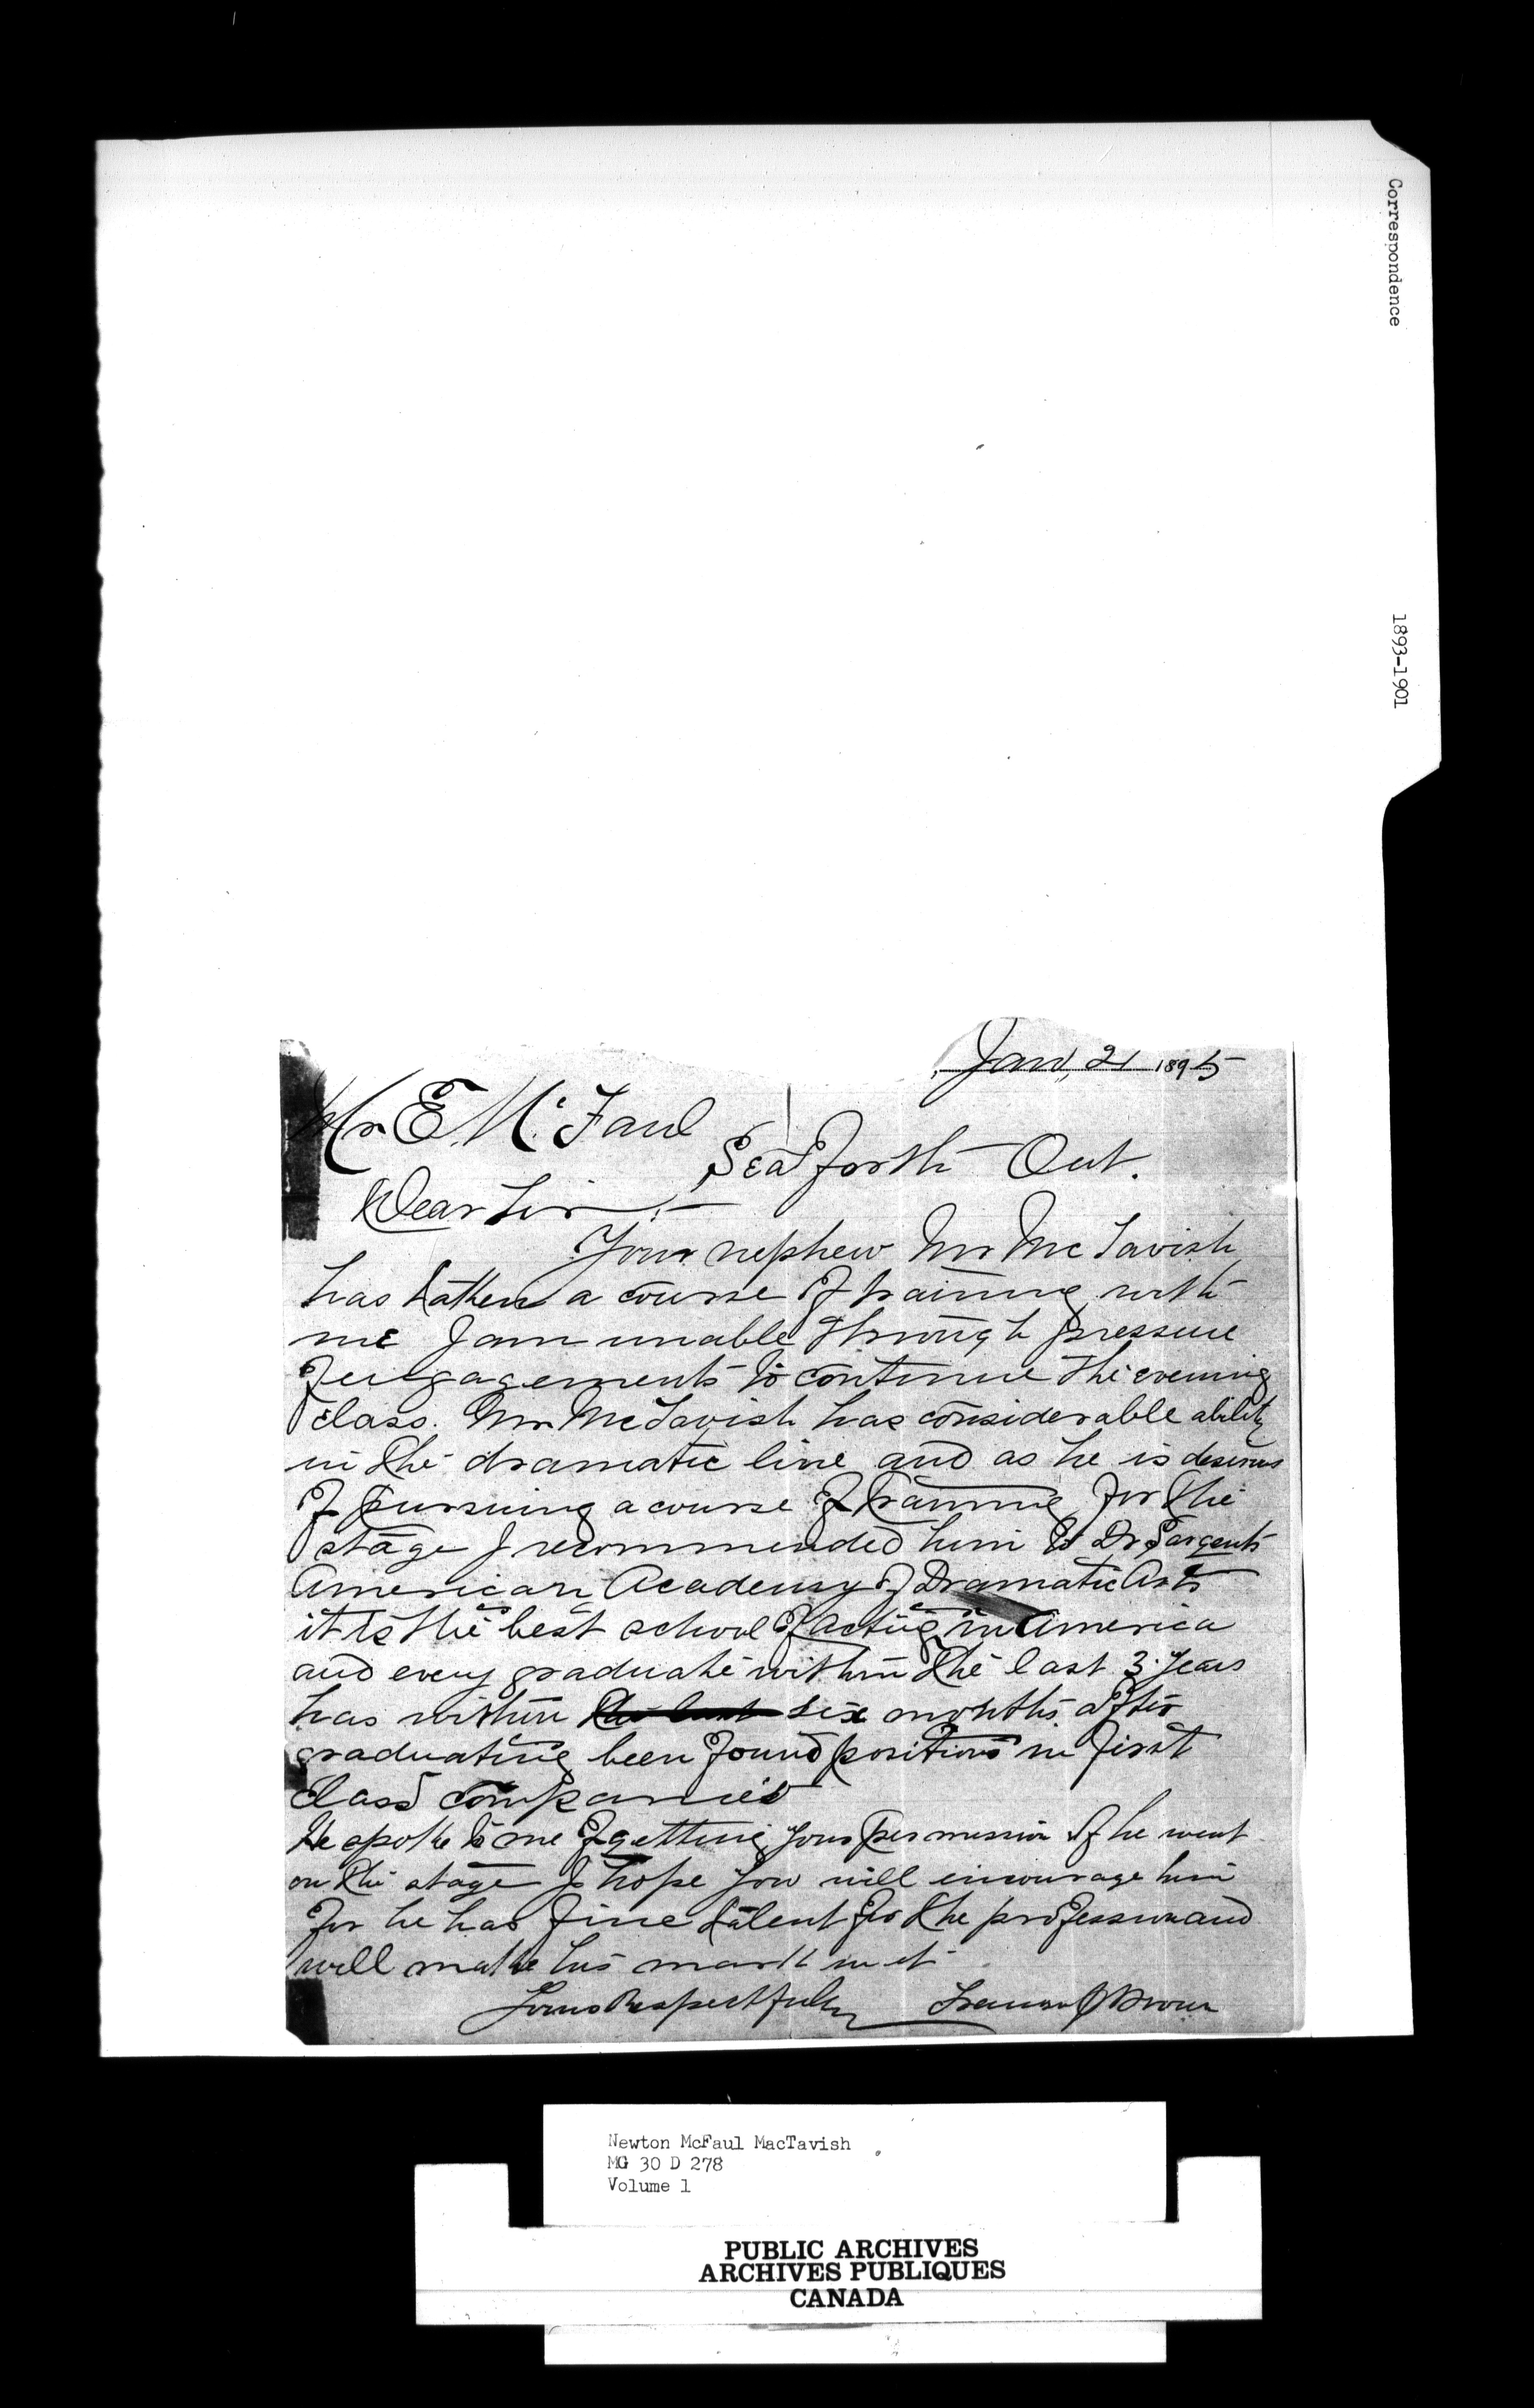 Correspondence
1893-1901
Jan, 21 1895
Mr E. Mc Faul
Seaforth Ont.
Dear Sir,—
Your nephew Mr McTavish
has taken a course of training with
me I am unable through pressure
of engagements to continue the evening
class. Mr. McTavish has considerable ability
in the dramatic line and as he is desirous
of pursuing a course of training for the
stage I recommended him to Dr Sargents
American Academy of Dramatic Arts
it is the best school of acting in America
and every graduate within the last 3 years
has within the last six months after
graduating been found positions in first
class companies
He spoke to me of getting your permission if he went
on the stage I hope you will encourage him
for he has fine talent for the profession and
will make his mark in it
Yours Respectfully Brown
Newton McFaul MacTavish
MG 30 D 278
Volume 1
PUBLIC ARCHIVES
ARCHIVES PUBLIQUES
CANADA